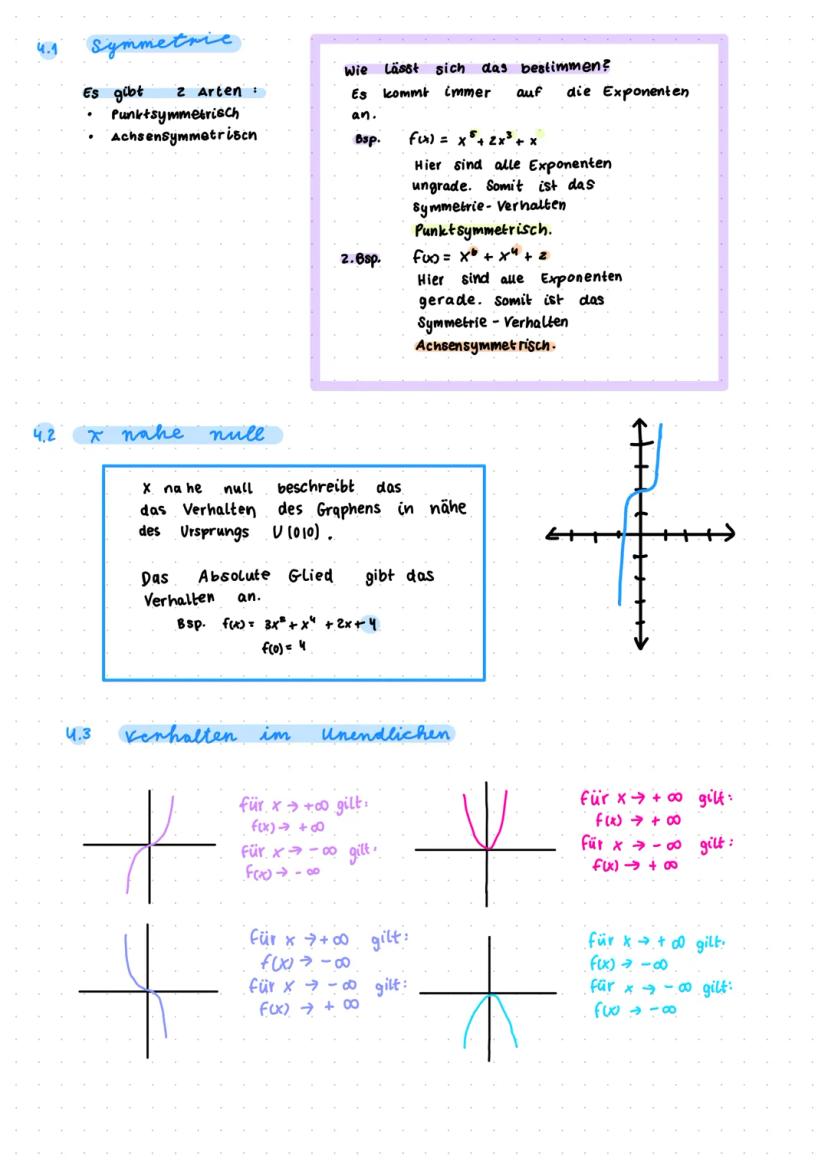 4.1 Symmetrie
Es gibt 2 Arten :
• Punktsymmetrisch
• Achsensymmetrisch
Wie lässt sich das bestimmen?
Es kommt immer auf die Exponenten
an.
Bsp. f(x) = x⁵ + 2x³ + x
Hier sind alle Exponenten
ungrade. Somit ist das
Symmetrie-Verhalten
Punktsymmetrisch.
2.Bsp. f(x) = x⁶ + x⁴ + 2
Hier sind alle Exponenten
gerade. Somit ist das
Symmetrie-Verhalten
Achsensymmetrisch.
4.2 x nahe null
X nahe null beschreibt das
das Verhalten des Graphens in nähe
des Ursprungs U(0|0).
Das Absolute Glied gibt das
Verhalten an.
Bsp. f(x) = 3x⁵ + x⁴ + 2x + 4
f(0) = 4
4.3 Verhalten im Unendlichen
für x → +∞ gilt:
f(x) → +∞
für x → -∞ gilt:
f(x) → -∞
für x → +∞ gilt:
f(x) → +∞
für x → -∞ gilt:
f(x) → +∞
für x → +∞ gilt:
f(x) → -∞
für x → -∞ gilt:
f(x) → +∞
für x → +∞ gilt:
f(x) → -∞
für x → -∞ gilt:
f(x) → -∞